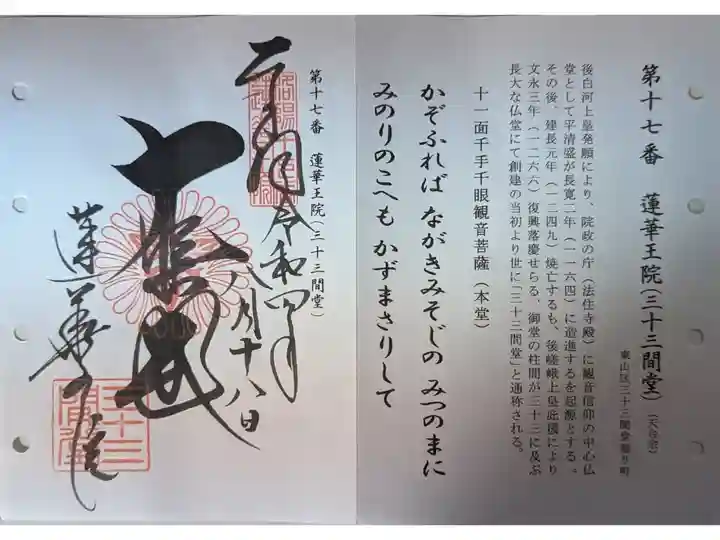 第十七番 蓮華王院(三十三間堂)(天台宗)
東山区三十三間堂廻り町
後白河上皇発願により、院政の庁(法住寺殿)に観音信仰の中心仏
堂として平清盛が長寛二年(一一六四)に造進するを起源とする。
その後、建長元年(一二四九)焼亡するも、後嵯峨上皇庇護により
文永三年(一二六六)復興落慶せらる、御堂の柱間が三十三に及ぶ
長大な仏堂にて創建の当初より世に「三十三間堂」と通称される。
十一面千手千眼観音菩薩(本堂)
かぞふれば ながきみそじの みつのまに
みのりのこへも かずまさりして
第十七番 蓮華王院(三十三間堂)
令和四年
八月十八日
大悲殿
蓮華王院
三十三